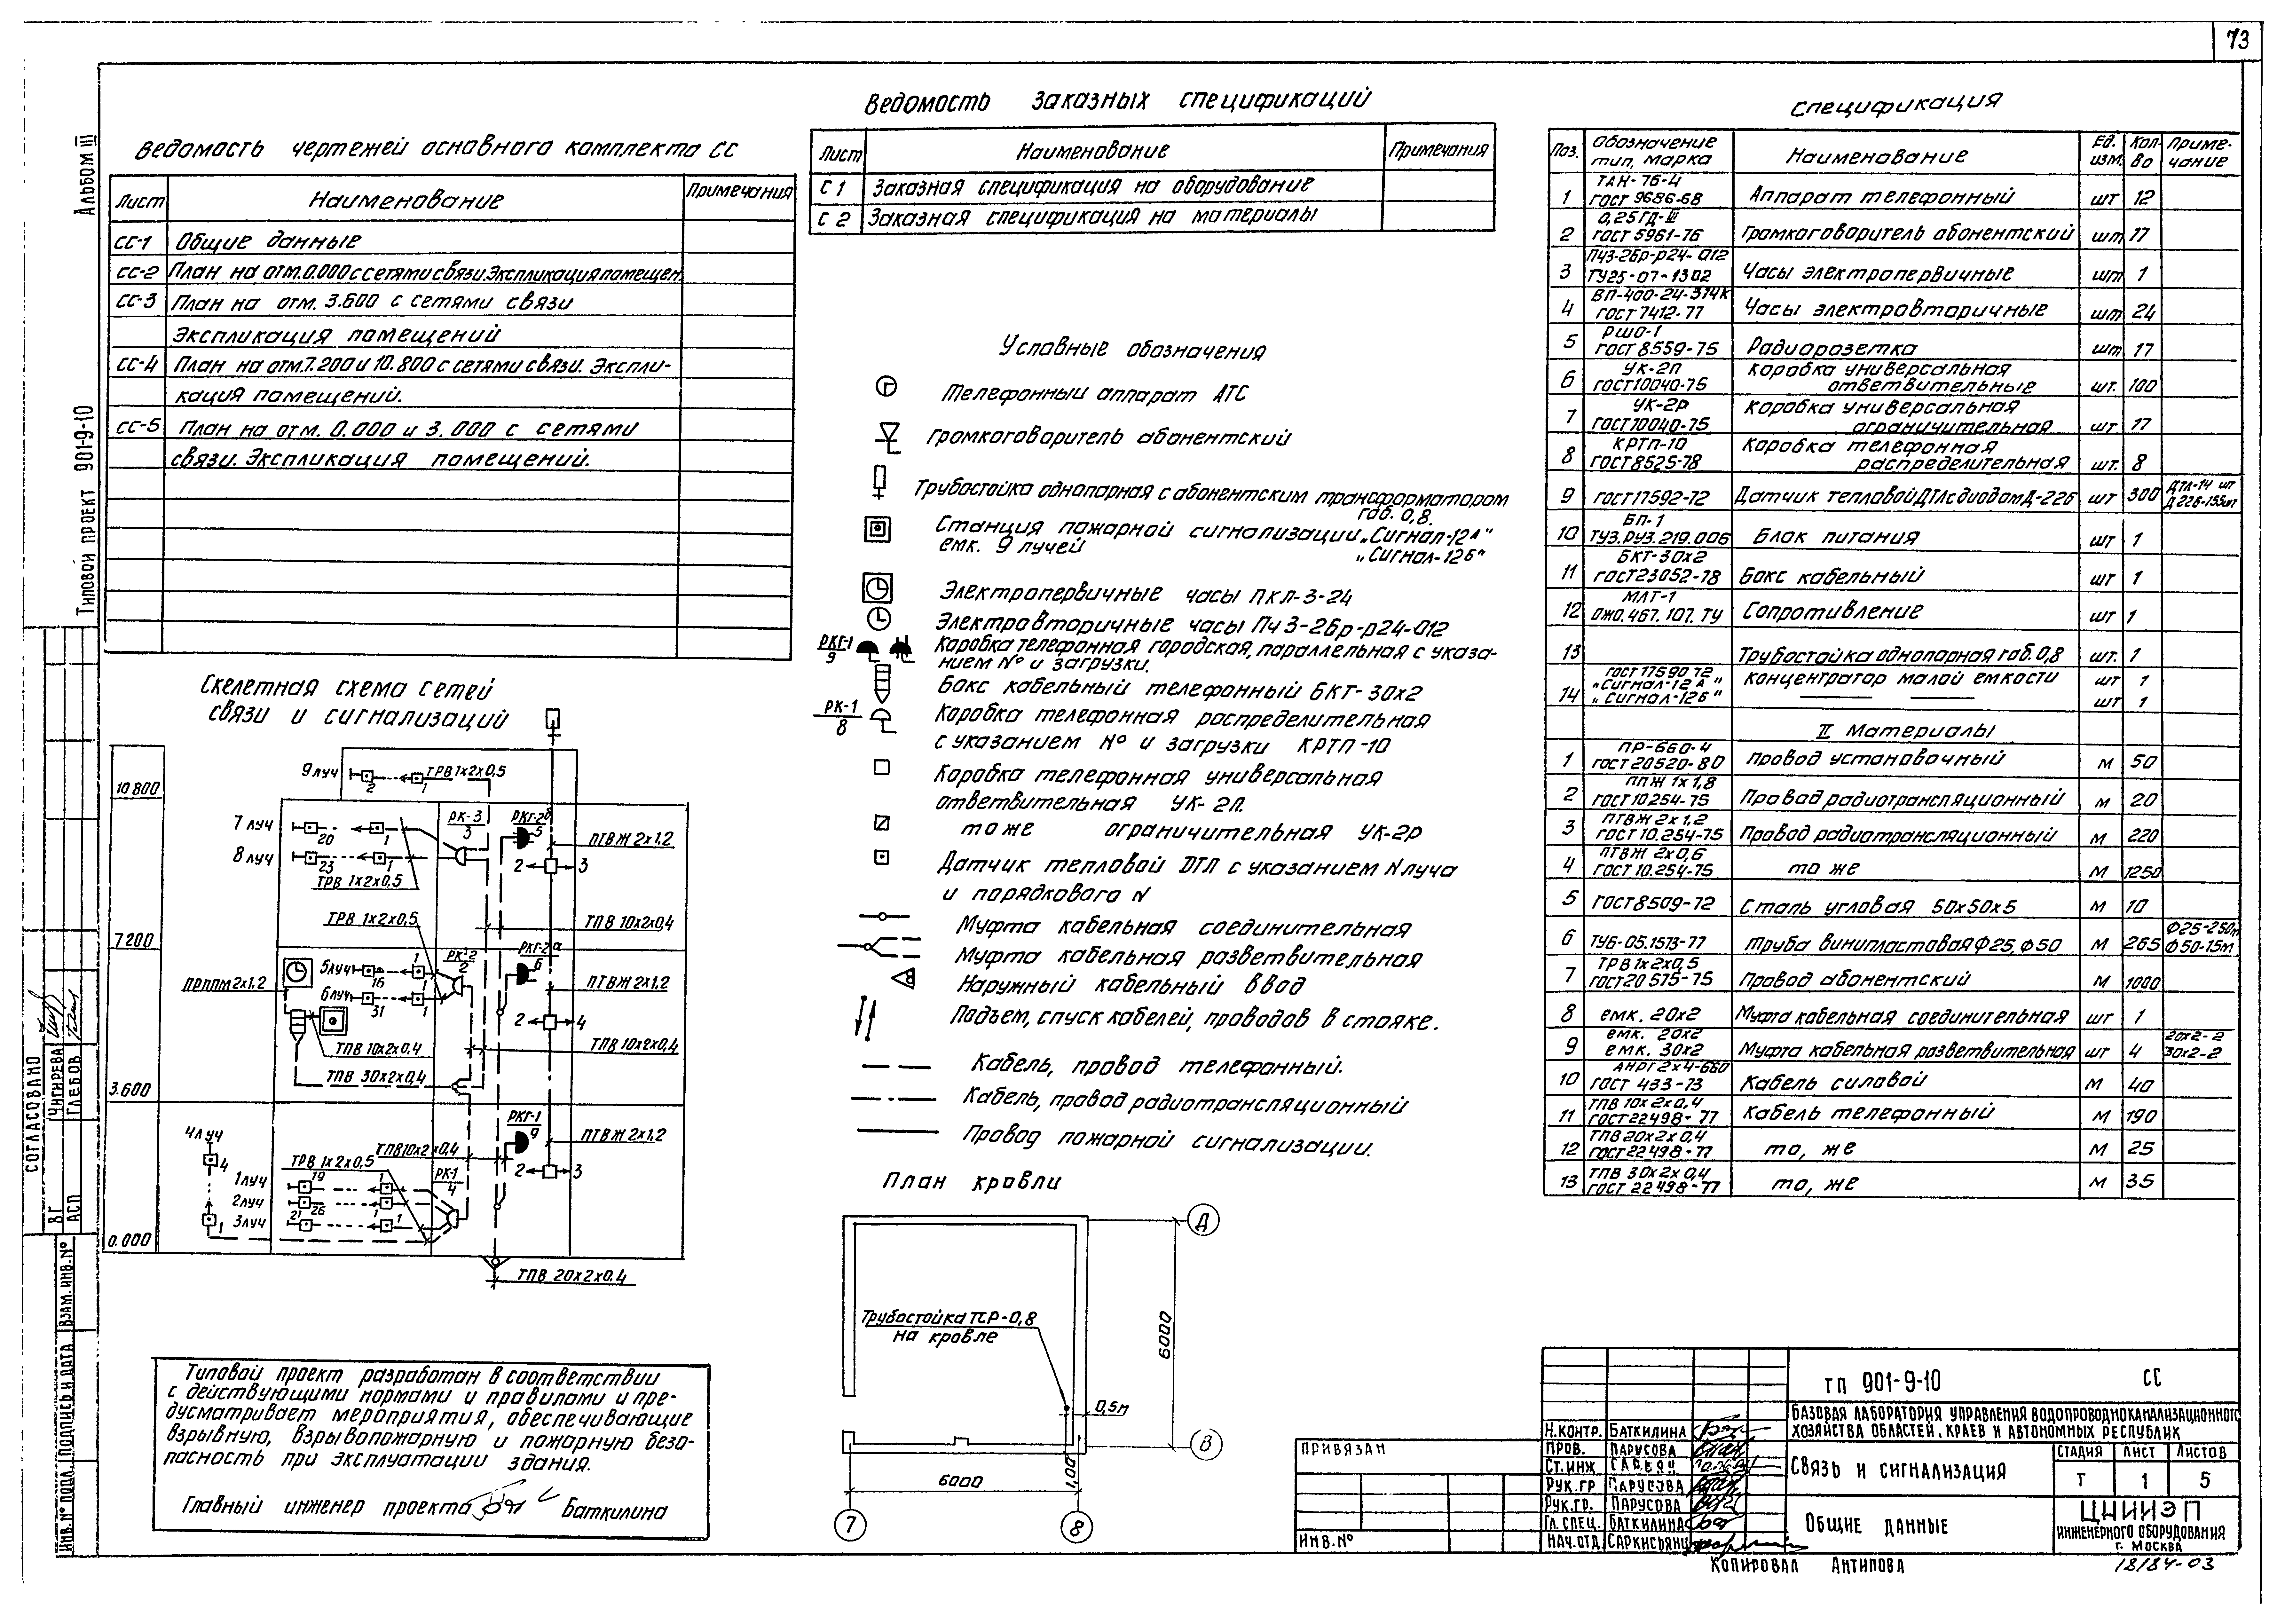 73
Альбом III
Типовой проект 901-9-10
Ведомость чертежей основного комплекта СС
Лист Наименование Примечания
СС-1 Общие данные
СС-2 План на отм.0.000 с сетями связи. Экспликация помещен.
СС-3 План на отм. 3.600 с сетями связи
Экспликация помещений
СС-4 План на отм.7.200 и 10.800 с сетями связи. Экспли-
кация помещений.
СС-5 План на отм. 0.000 и 3.000 с сетями
связи. Экспликация помещений.
Ведомость заказных спецификаций
Лист Наименование Примечания
С 1 Заказная спецификация на оборудование
С 2 Заказная спецификация на материалы
Условные обозначения
Телефонный аппарат АТС
Громкоговоритель абонентский
Трубостойка однопарная с абонентским трансформатором
габ. 0,8.
Станция пожарной сигнализации „Сигнал-12А"
емк. 9 лучей „Сигнал-12б"
Электропервичные часы ПКЛ-3-24
Электровторичные часы Пч3-2бр-р24-012
РКГ-1
9
Коробка телефонная городская, параллельная с указа-
нием № и загрузки.
Бокс кабельный телефонный БКТ-30х2
РК-1
8
Коробка телефонная распределительная
с указанием № и загрузки КРТП-10
Коробка телефонная универсальная
ответвительная УК-2П.
тоже ограничительная УК-2р
Датчик тепловой ДТЛ с указанием N луча
и порядкового N
Муфта кабельная соединительная
Муфта кабельная разветвительная
Наружный кабельный ввод
Подъем, спуск кабелей, проводов в стояке.
Кабель, провод телефонный.
Кабель, провод радиотрансляционный
Провод пожарной сигнализации.
План кровли
Трубостойка ТСР-0,8
на кровле
0,5м
6000
6000
1,00
Д
В
7
8
Спецификация
Поз. Обозначение тип, марка Наименование Ед. изм. Кол-во Приме-чание
1 ТАН-76-4 ГОСТ 9686-68 Аппарат телефонный шт 12
2 0,25ГД-III ГОСТ 5961-76 Громкоговоритель абонентский шт 17
3 ПЧ3-2бр-р24-012 ТУ25-07-1302 Часы электропервичные шт 1
4 ВП-400-24-314К ГОСТ 7412-77 Часы электровторичные шт 24
5 РШО-1 ГОСТ 8559-75 Радиорозетка шт 17
6 УК-2П ГОСТ10040-75 Коробка универсальная ответвительные шт. 100
7 УК-2Р ГОСТ10040-75 Коробка универсальная ограничительная шт. 17
8 КРТП-10 ГОСТ8525-78 Коробка телефонная распределительная шт. 8
9 ГОСТ17592-72 Датчик тепловой ДТЛ с диодом Д-226 шт 300 ДТЛ-14 шт Д226-155шт
10 БП-1 ТУ3.РУ3.219.006 Блок питания шт 1
11 БКТ-30х2 ГОСТ23052-78 Бокс кабельный шт 1
12 МЛТ-1 ОЖО.467.107.ТУ Сопротивление шт 1
13 Трубостойка однопарная габ. 0,8 шт. 1
14 ГОСТ 17590 72 „Сигнал-12 А" концентратор малой емкости шт 1
„Сигнал-12б" шт 1
II Материалы
1 ПР-660-4 ГОСТ 20520-80 Провод установочный м 50
2 ППЖ 1х1,8 ГОСТ10254-75 Провод радиотрансляционный м 20
3 ПТВЖ 2х1,2 ГОСТ 10.254-75 Провод радиотрансляционный м 220
4 ПТВЖ 2х0,6 ГОСТ 10.254-75 то же м 1250
5 ГОСТ8509-72 Сталь угловая 50х50х5 м 10
6 ТУ6-05.1573-77 Труба винипластовая Ф25, Ф50 м 265 Ф25-250м Ф50-15м
7 ТРВ 1х2х0,5 ГОСТ20575-75 Провод абонентский м 1000
8 емк. 20х2 Муфта кабельная соединительная шт 1
9 емк. 20х2 емк. 30х2 Муфта кабельная разветвительная шт 4 20х2-2 30х2-2
10 АНРГ2х4-660 ГОСТ 433-73 Кабель силовой м 40
11 ТПВ 10х2х0,4 ГОСТ22498-77 Кабель телефонный м 190
12 ТПВ 20х2х0,4 ГОСТ22498-77 то, же м 25
13 ТПВ 30х2х0,4 ГОСТ 22498-77 то, же м 35
Скелетная схема сетей
связи и сигнализаций
10 800
7 200
3.600
0.000
9 луч
2
1
ТРВ 1х2х0,5
7 луч
20
1
8 луч
23
1
ТРВ 1х2х0,5
РК-3
3
РКГ-2б
5
ПТВЖ 2х1,2
2
3
ТРВ 1х2х0,5
ТПВ 10х2х0,4
РКГ-2а
6
РК-2
2
5луч
16
1
6луч
31
1
ПРППМ 2х1,2
ПТВЖ 2х1,2
2
4
ТПВ 10х2х0,4
ТПВ 10х2х0,4
ТПВ 30х2х0,4
РКГ-1
9
4луч
4
1
ТПВ10х2х0,4
ПТВЖ 2х1,2
ТРВ 1х2х0,5
РК-1
4
2
3
1луч
19
1
2луч
26
1
3луч
21
1
ТПВ 20х2х0.4
Типовой проект разработан в соответствии
с действующими нормами и правилами и пре-
дусматривает мероприятия, обеспечивающие
взрывную, взрывопожарную и пожарную безо-
пасность при эксплуатации здания.
Главный инженер проекта Баткилина
СОГЛАСОВАНО
ВГ Чигирева
АСП Глебов
Инв.№ подл. Подпись и дата Взам. инв.№
Привязан
Инв.№
Н.контр. Баткилина
Пров. Парусова
Ст.инж
Рук.гр Парусова
Рук.гр. Парусова
Гл.спец. Баткилина
Нач.отд. Саркисьянц
ТП 901-9-10 СС
Базовая лаборатория управления водопроводноканализационного
хозяйства областей, краев и автономных республик
Связь и сигнализация
Стадия Лист Листов
Т 1 5
Общие данные
ЦНИИЭП
инженерного оборудования
г. Москва
Копировал Антипова
18184-03